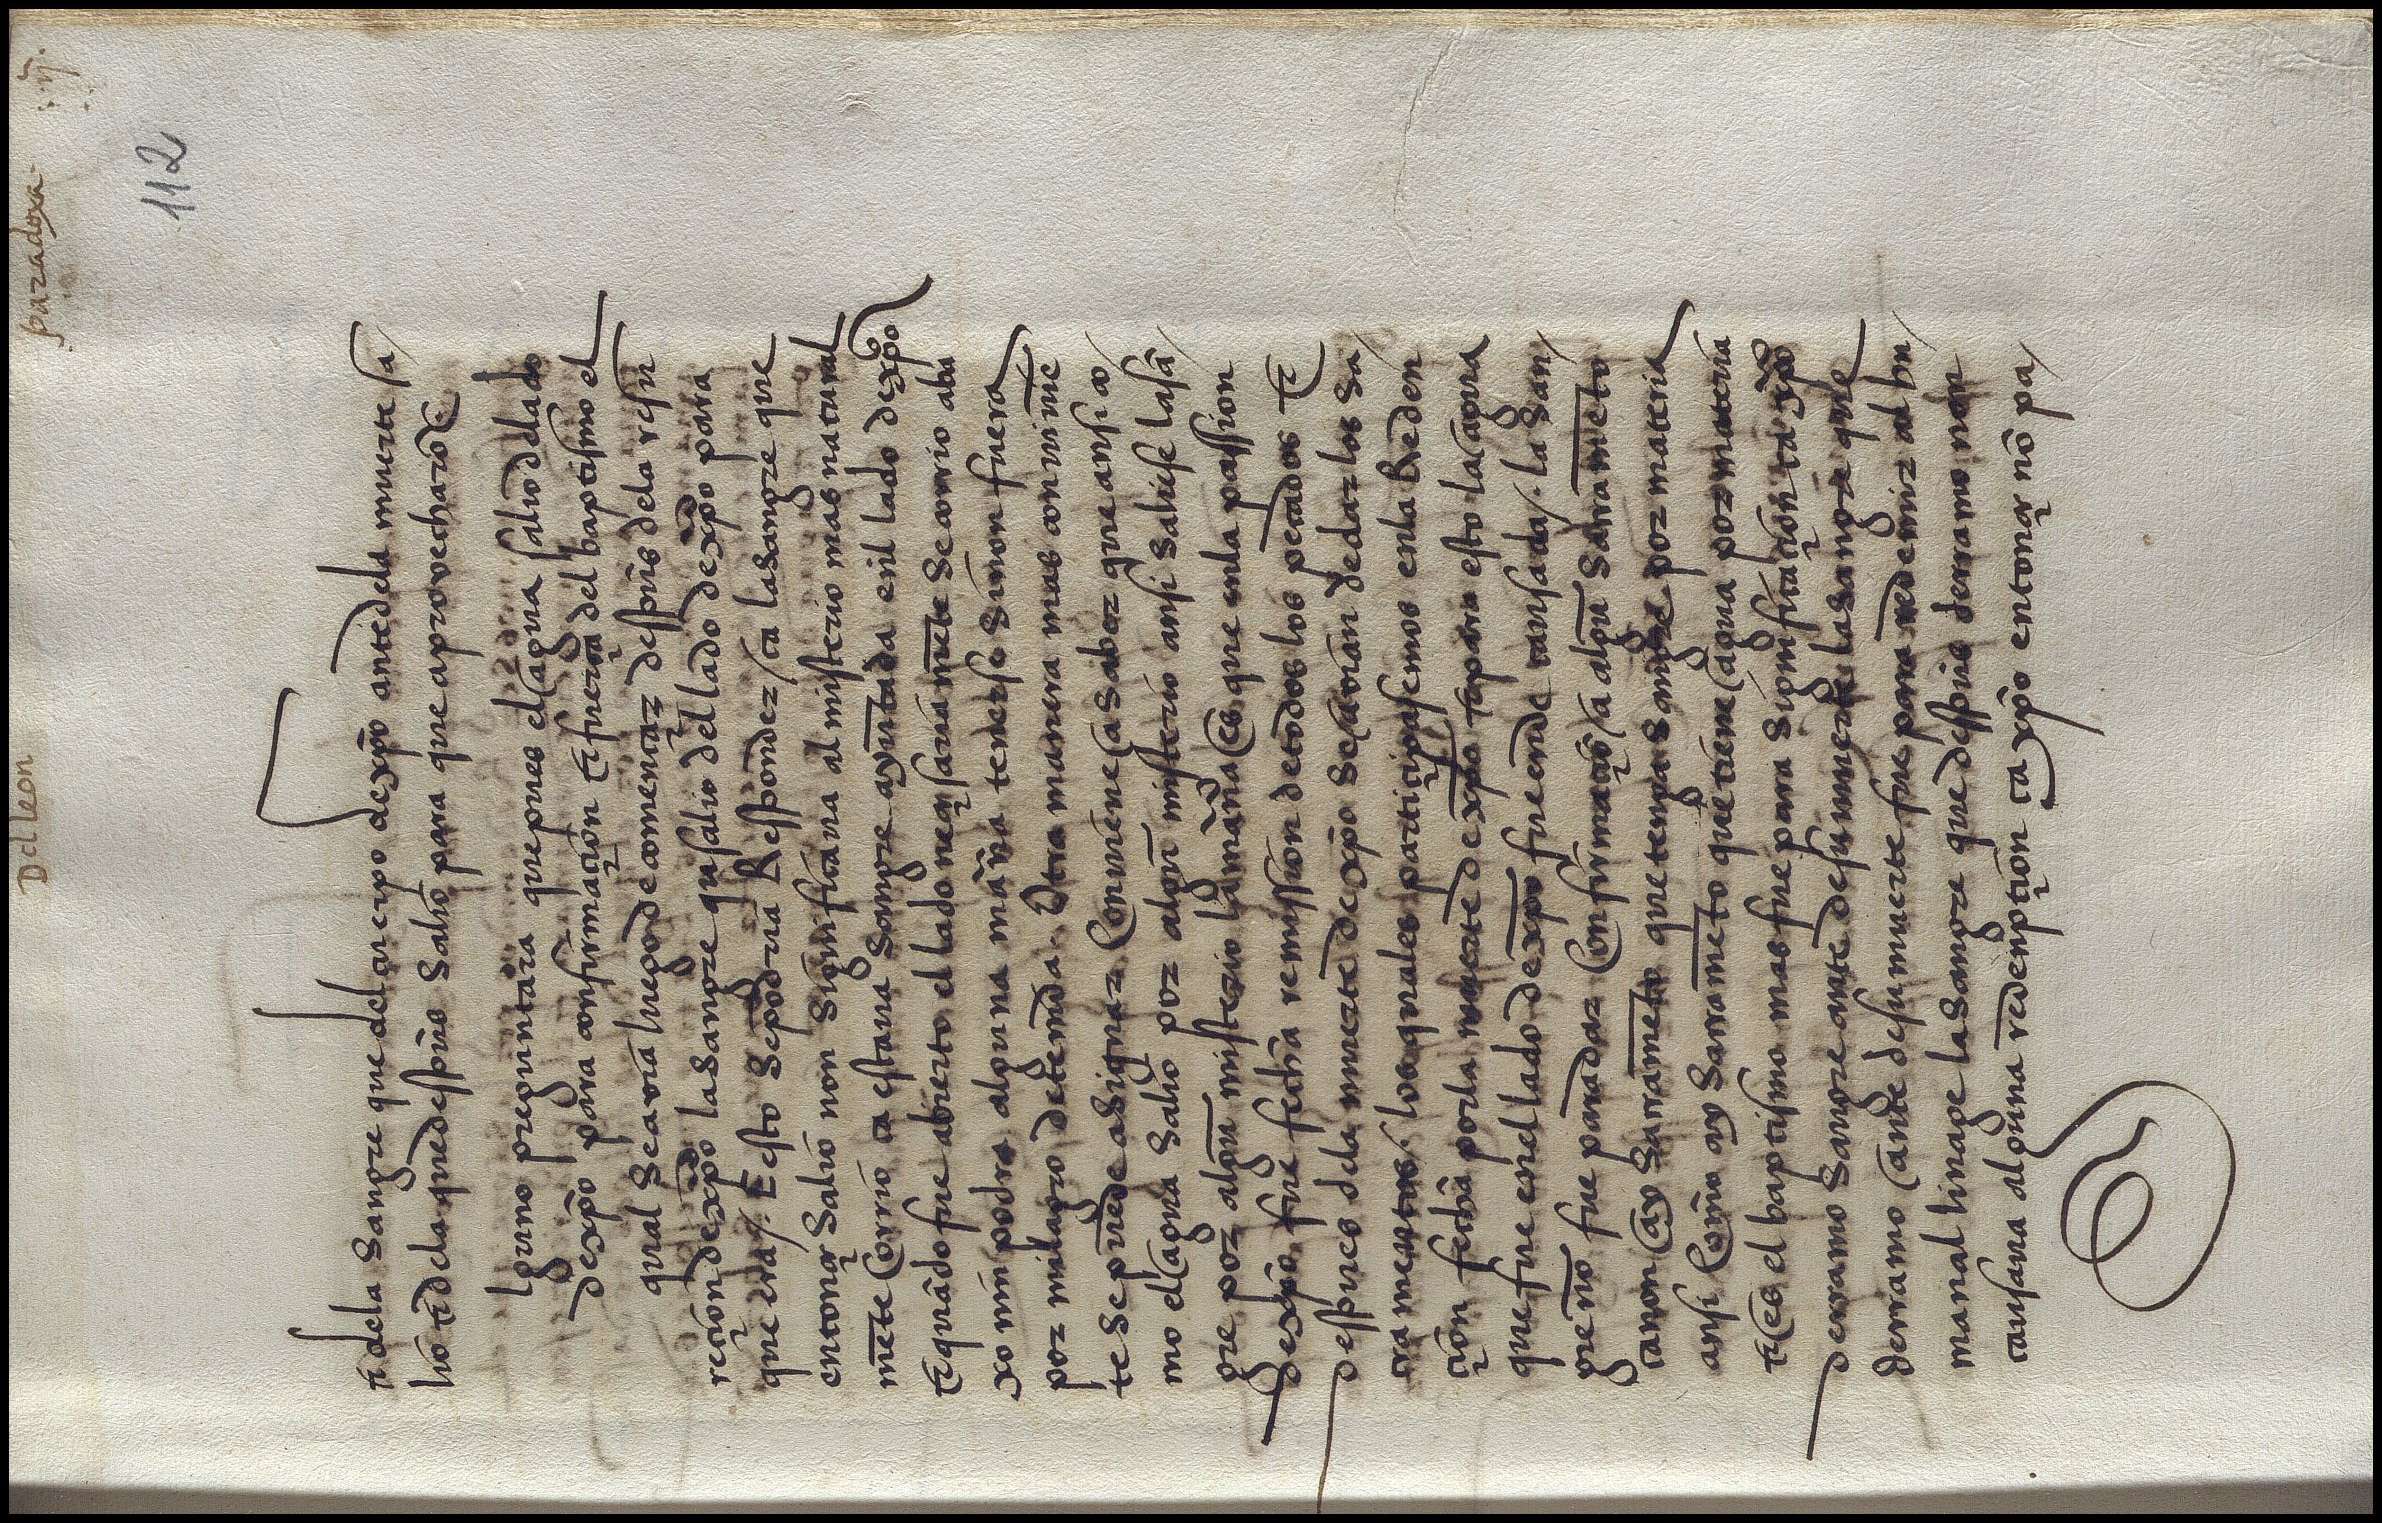 Del leon
paradoxa
.iij.
112
τ dela Sangre que del cuerpo dexp̃o antedela muerte sa
lio τ dela que despues Salio para que aprovecharõ τc̃
lguno preguntara que pues el agua salio d'l lado
dexp̃o para confirmaçion τ fuerça del baptismo el
qual Se avia luego de començar despues dela resu
reçion dexp̃o la Sangre que salio del lado dexp̃o para
que era /. E esto Se podria Responder / ca la sangre que
entonçe Salio non Significava al misterio mas natural
mẽte Corrio ca estava Sangre ayuntada enl lado dexp̃o
τ quãdo fue abierto el lado neçesariamẽte Se corrio aba
xo nin podra alguna mañra tenerse Sinon fuera
por milagro detenida. Otra manera mas conviniẽ
te Se puede asignar Conviene a saber que ansi co
mo el agua Salio por algun misterio ansi saliese la sã
gre por algun misterio la mañra es que enla passion
dexp̃o fue fecha remission de todos los pecados τ
despues dela muerte dexp̃o Se avian dedar los Sa
cramentos / los quales partiçipasemos enla Reden
çion fecha por la muerte dexp̃o τ para esto la agua
que fue enel lado dexp̃o fue ende causada /. la San
gre nõ fue para dar Confirmaçiõ a algun Sacramẽto
ca non ay Sacramẽto que tenga Sangre por materia
ansi Como ay Sacramẽto que tiene agua por materia
τ es el baptismo mas fue para Significaçion ca xp̃o
derramo Sangre ante desu muerte la Sangre que
derramo ante desu muerte fue para redemir al hu
manal linage la Sangre que despues derramo non
causava alguna redempçion ca xp̃o entonçe nõ pa